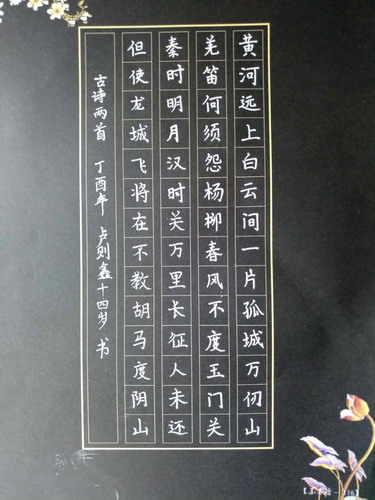 黄河远上白云间一片孤城万仞山
羌笛何须怨杨柳春风不度玉门关
秦时明月汉时关万里长征人未还
但使龙城飞将在不教胡马度阴山
古诗两首 丁酉年 卢则鑫十四岁 书